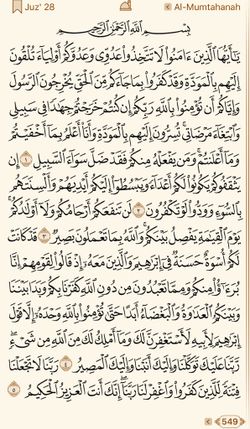 Juz' 28 Al-Mumtahanah
بِسْمِ ٱللَّهِ ٱلرَّحْمَـٰنِ ٱلرَّحِيمِ
يَـٰٓأَيُّهَا ٱلَّذِينَ ءَامَنُوا۟ لَا تَتَّخِذُوا۟ عَدُوِّى وَعَدُوَّكُمْ أَوْلِيَآءَ تُلْقُونَ
إِلَيْهِم بِٱلْمَوَدَّةِ وَقَدْ كَفَرُوا۟ بِمَا جَآءَكُم مِّنَ ٱلْحَقِّ يُخْرِجُونَ ٱلرَّسُولَ
وَإِيَّاكُمْ ۙ أَن تُؤْمِنُوا۟ بِٱللَّهِ رَبِّكُمْ إِن كُنتُمْ خَرَجْتُمْ جِهَـٰدًا فِى سَبِيلِى
وَٱبْتِغَآءَ مَرْضَاتِى ۚ تُسِرُّونَ إِلَيْهِم بِٱلْمَوَدَّةِ وَأَنَا۠ أَعْلَمُ بِمَآ أَخْفَيْتُمْ
وَمَآ أَعْلَنتُمْ ۚ وَمَن يَفْعَلْهُ مِنكُمْ فَقَدْ ضَلَّ سَوَآءَ ٱلسَّبِيلِ ١ إِن
يَثْقَفُوكُمْ يَكُونُوا۟ لَكُمْ أَعْدَآءً وَيَبْسُطُوٓا۟ إِلَيْكُمْ أَيْدِيَهُمْ وَأَلْسِنَتَهُم
بِٱلسُّوٓءِ وَوَدُّوا۟ لَوْ تَكْفُرُونَ ٢ لَن تَنفَعَكُمْ أَرْحَامُكُمْ وَلَآ أَوْلَـٰدُكُمْ ۚ
يَوْمَ ٱلْقِيَـٰمَةِ يَفْصِلُ بَيْنَكُمْ ۚ وَٱللَّهُ بِمَا تَعْمَلُونَ بَصِيرٌ ٣ قَدْ كَانَتْ
لَكُمْ أُسْوَةٌ حَسَنَةٌ فِىٓ إِبْرَٰهِيمَ وَٱلَّذِينَ مَعَهُۥٓ إِذْ قَالُوا۟ لِقَوْمِهِمْ إِنَّا
بُرَءَٰٓؤُا۟ مِنكُمْ وَمِمَّا تَعْبُدُونَ مِن دُونِ ٱللَّهِ كَفَرْنَا بِكُمْ وَبَدَا بَيْنَنَا
وَبَيْنَكُمُ ٱلْعَدَٰوَةُ وَٱلْبَغْضَآءُ أَبَدًا حَتَّىٰ تُؤْمِنُوا۟ بِٱللَّهِ وَحْدَهُۥٓ إِلَّا قَوْلَ
إِبْرَٰهِيمَ لِأَبِيهِ لَأَسْتَغْفِرَنَّ لَكَ وَمَآ أَمْلِكُ لَكَ مِنَ ٱللَّهِ مِن شَىْءٍ ۖ
رَّبَّنَا عَلَيْكَ تَوَكَّلْنَا وَإِلَيْكَ أَنَبْنَا وَإِلَيْكَ ٱلْمَصِيرُ ٤ رَبَّنَا لَا تَجْعَلْنَا
فِتْنَةً لِّلَّذِينَ كَفَرُوا۟ وَٱغْفِرْ لَنَا رَبَّنَآ ۖ إِنَّكَ أَنتَ ٱلْعَزِيزُ ٱلْحَكِيمُ ٥
549